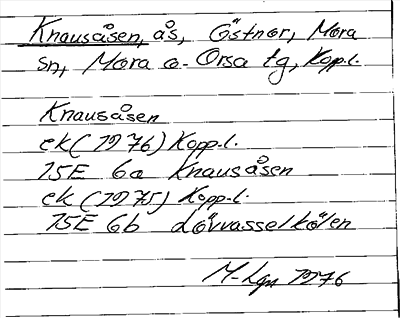 Knausåsen, ås, Östnor, Mora
sn, Mora o. Orsa tg, Kopp.l.
Knausåsen
ek (1976) Kopp.l.
15E 6a Knausåsen
ek (1975) Kopp.l.
15E 6b Lövvasselkölen
M-Lgn 1976